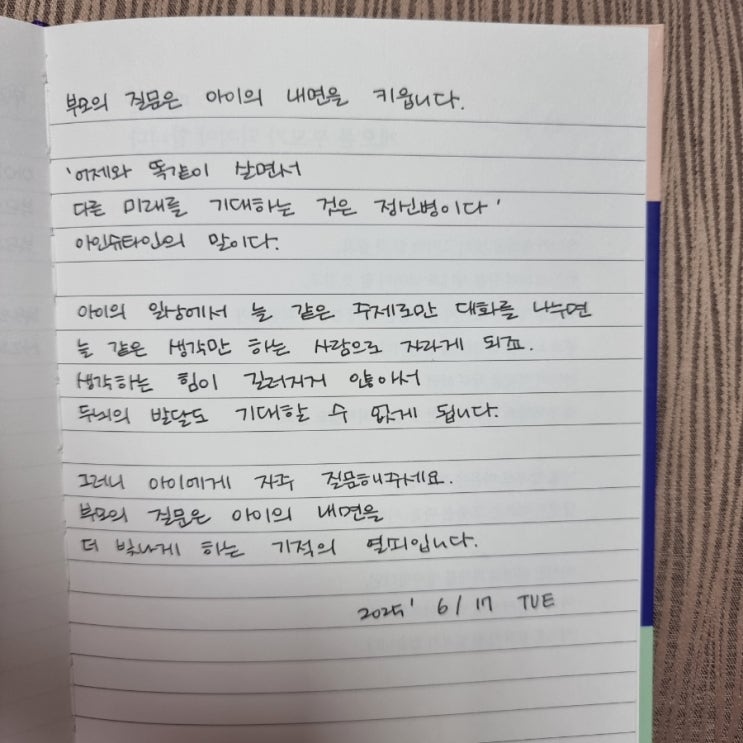 부모의 질문은 아이의 내면을 키웁니다.
'어제와 똑같이 살면서
다른 미래를 기대하는 것은 정신병이다'
아인슈타인의 말이다.
아이의 일상에서 늘 같은 주제로만 대화를 나누면
늘 같은 생각만 하는 사람으로 자라게 되죠.
생각하는 힘이 길러지지 않아서
두뇌의 발달도 기대할 수 없게 됩니다.
그러니 아이에게 자주 질문해주세요.
부모의 질문은 아이의 내면을
더 빛나게 하는 기적의 열쇠입니다.
2025' 6/17 TUE